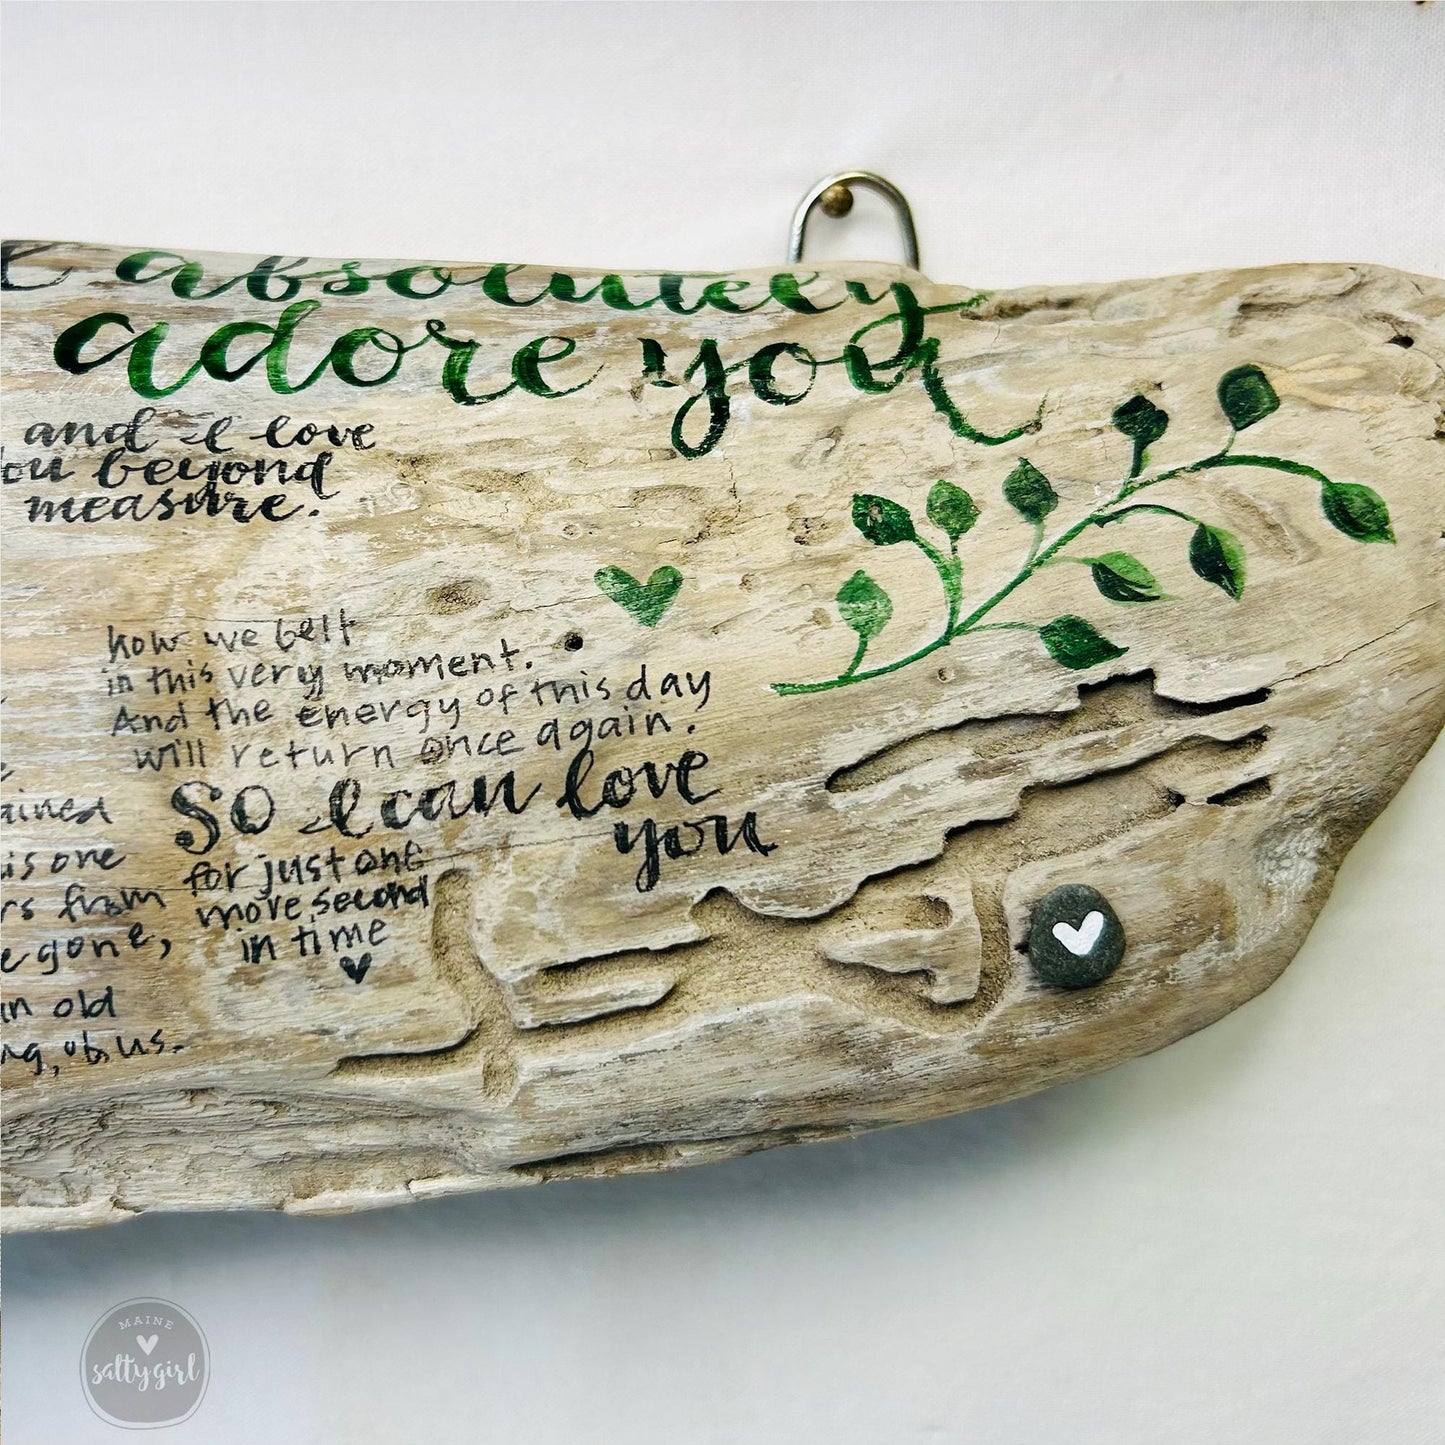 I absolutely
adore you
, and I love
you beyond
measure.
how we belt
in this very moment.
And the energy of this day
will return once again.
So I can love
you
for just one
more second
in time
ained
is one
rs from
e gone,
an old
ng, us.
MAINE
saltygirl